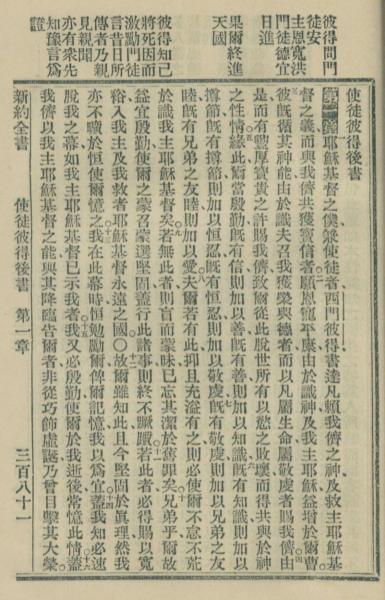 彼得問門
徒安
主恩寬洪
門徒德宜
日進
果爾終進
天國
彼得知己
將死因而
激勵門徒
言昔日所
傳者乃親
見親聞
亦有衆先
知豫言爲
證
使徒彼得後書
第一章耶穌基督之僕、兼使徒者、西門彼得書達凡賴我儕之神、及救主耶穌基
督之義、而與我儕共獲寶信者、願恩寵平康由於識神、及我主耶穌、益增於爾曹、
彼旣循其神能、由於識夫召我獲榮與德者、而以凡屬生命、屬敬虔者、賜我儕、由
是而有豐厚寶貴之許賜我儕、致爾從此脫世所有以慾之敗壞、而得共與於神
之性情、緣此、爾當殷勤、旣有信、則加以善、旣有善、則加以知識、旣有知識、則加以
撙節、旣有撙節、則加以恒忍、旣有恒忍、則加以敬虔、旣有敬虔、則加以兄弟之友
睦、旣有兄弟之友睦、則加以愛、夫爾若有此、抑且充溢有之、則必使爾不怠不荒
於識我主耶穌基督矣、若無此者、則盲而蒙昧、已忘其潔於舊罪矣、兄弟乎、爾故
益宜殷勤、使爾之蒙召蒙選堅固、蓋行此諸事、則終不蹶躓、若此者、必得賜以寬
裕入我主及我救者耶穌基督永遠之國、〇故爾雖知此、且今堅固於眞理、然我
亦不曠於恒使爾憶之、我在此幕時、恒勉勵爾、俾爾記憶、我以爲宜、蓋我知必速
脫我之幕、如我主耶穌基督已示我者、我又必殷勤使爾於我逝後、常憶此情、蓋
我儕以我主耶穌基督之能、與其降臨告爾者、非從巧飾虛誕、乃曾目擊其大榮、
新約全書　使徒彼得後書　第一章　三百八十一